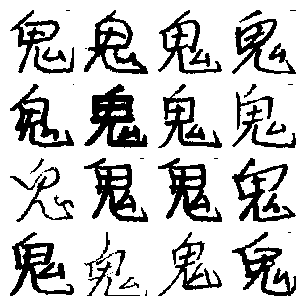 鬼鬼鬼鬼
鬼鬼鬼鬼
鬼鬼鬼鬼
鬼鬼鬼鬼